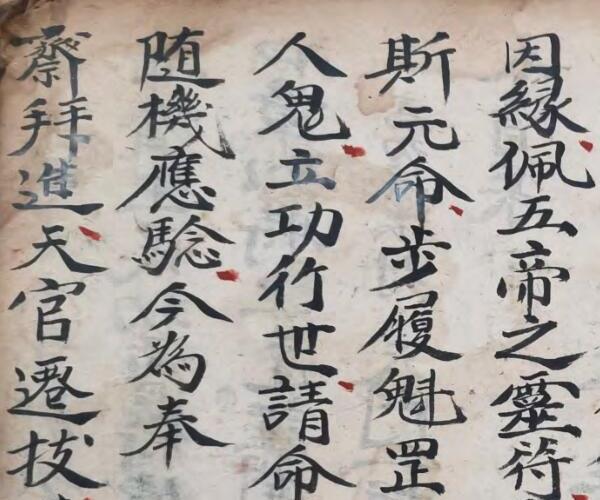 因緣佩五帝之靈符
斯元命步履魁罡
人鬼立功行世請命
随機應驗今為奉
齋拜進天官遷拔